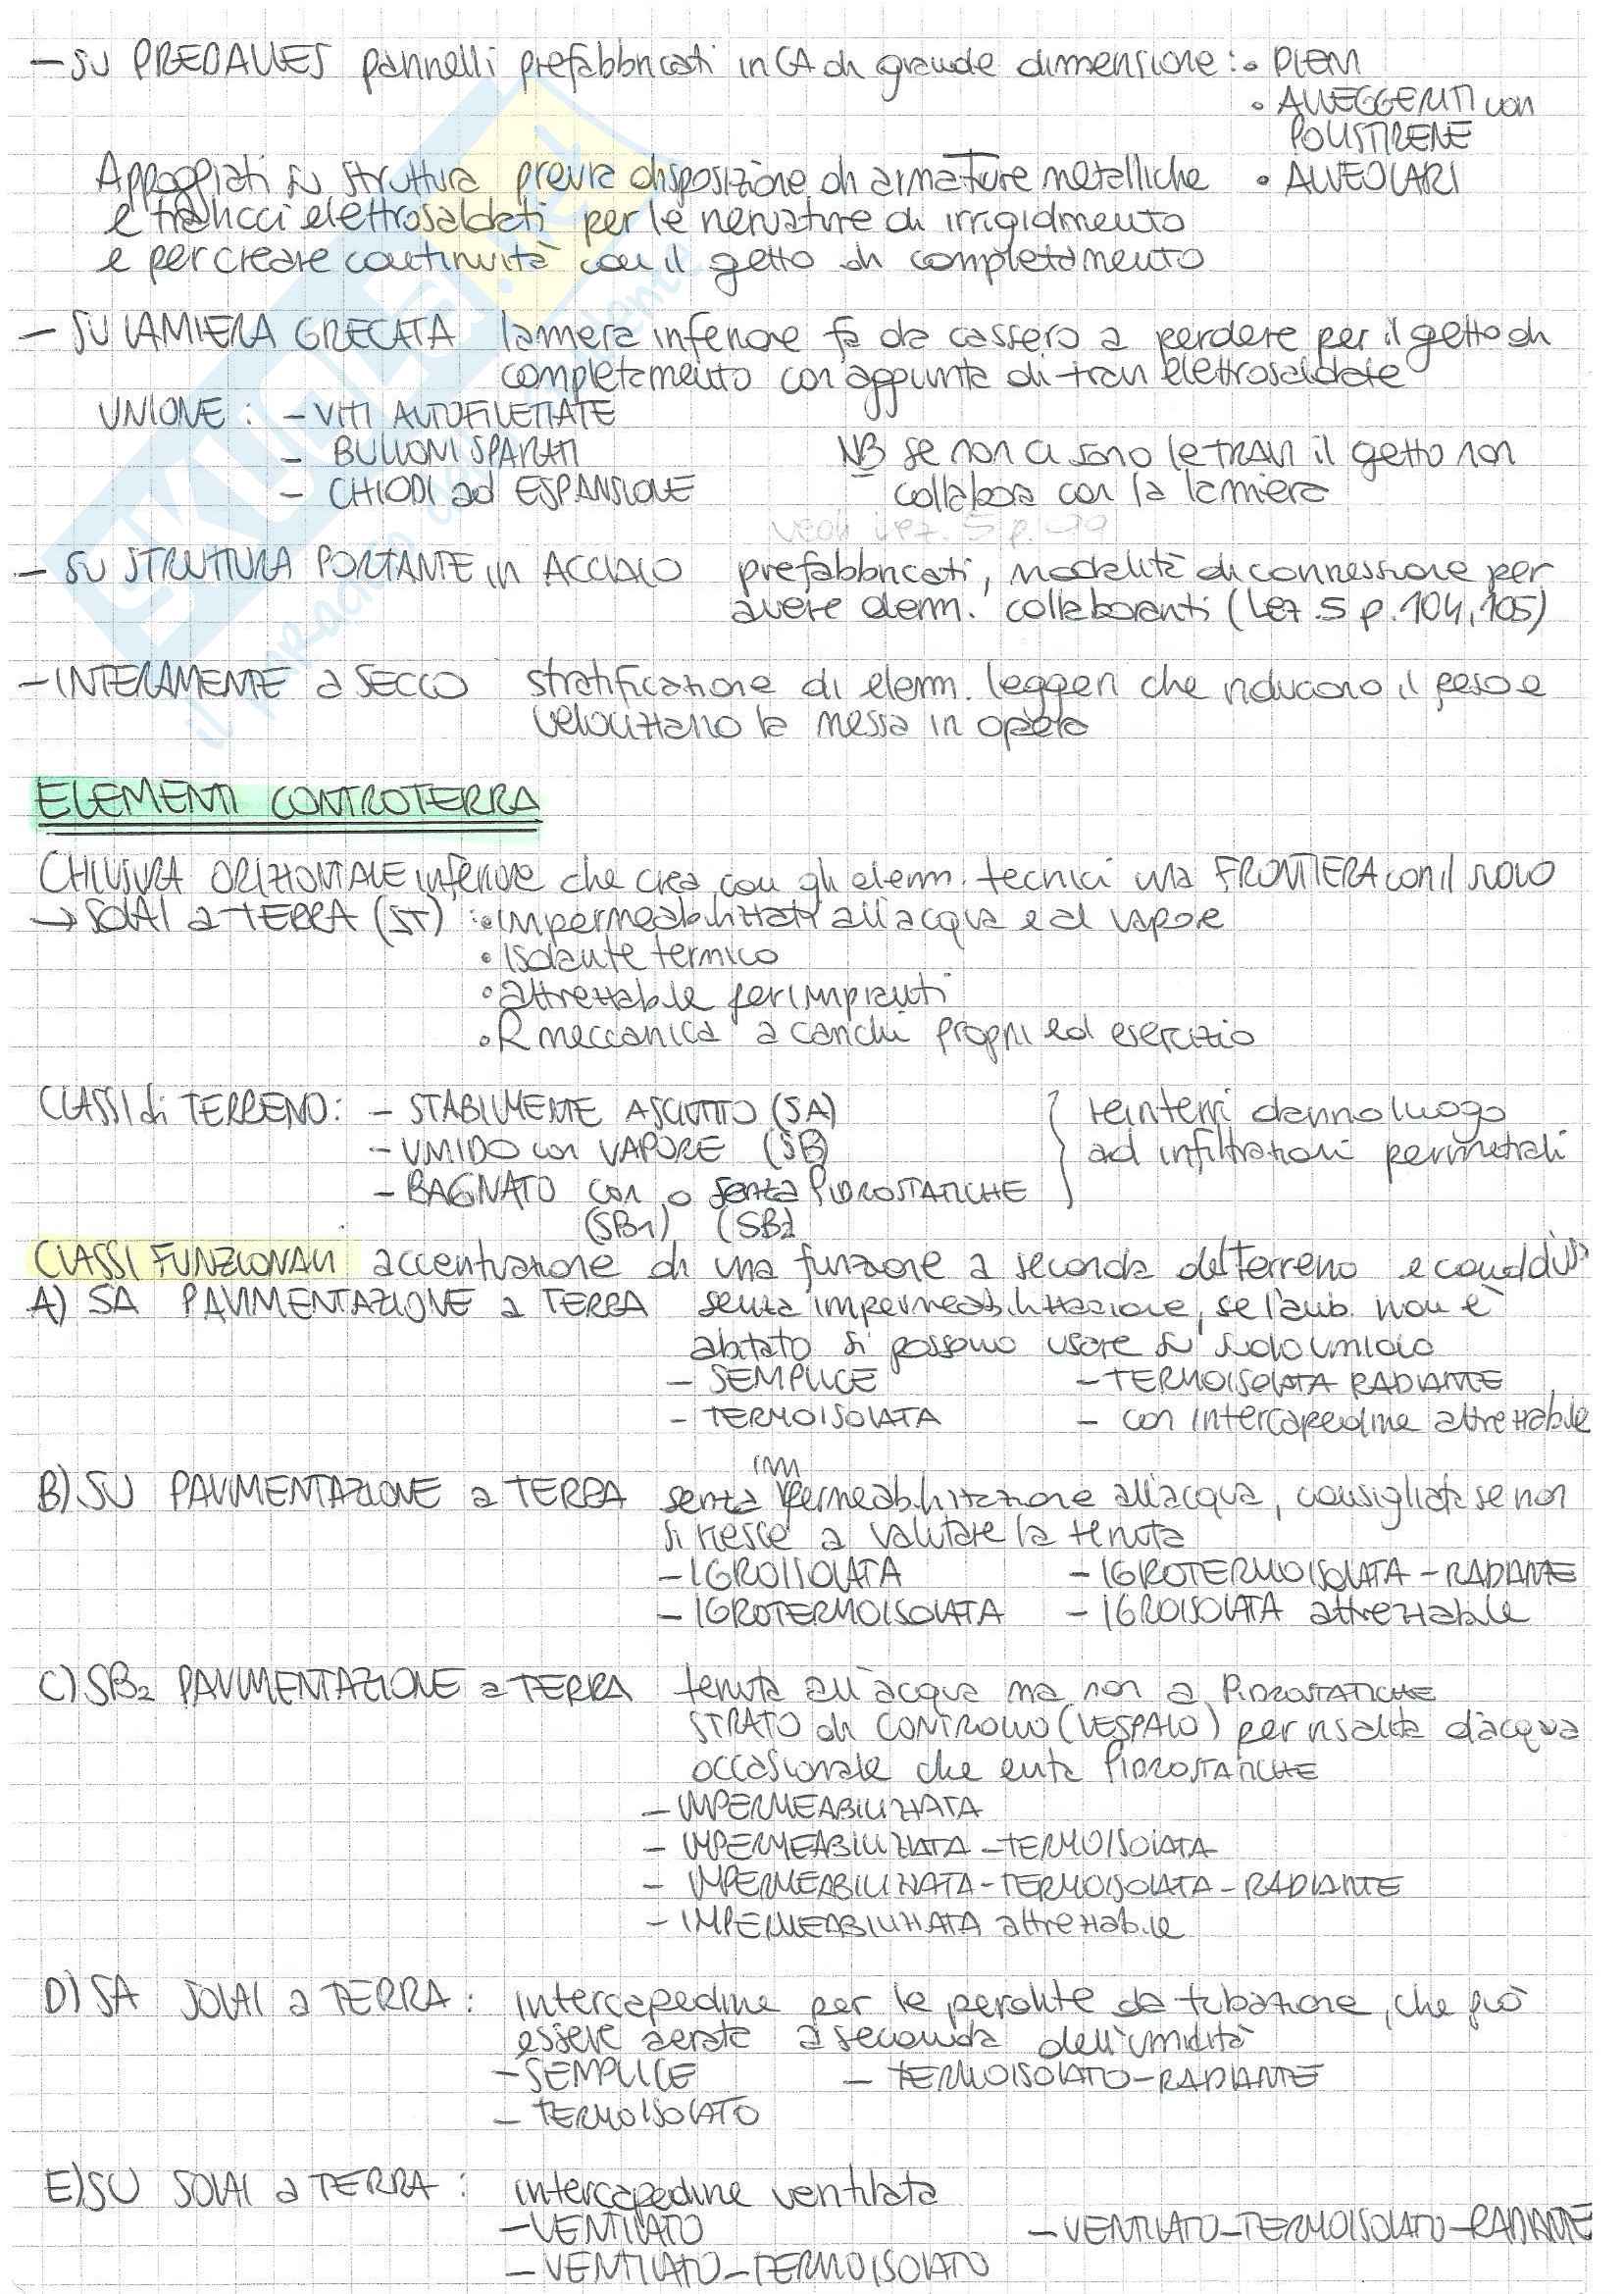 - SU PREDALLES pannelli prefabbricati in CA di grande dimensione: • PIENI
• ALLEGGERITI con
POLISTIRENE
Appoggiati su struttura previa disposizione di armature metalliche • ALVEOLARI
e tralicci elettrosaldati per le nervature di irrigidimento
e per creare continuità con il getto di completamento
- SU LAMIERA GRECATA lamiera inferiore fa da cassero a perdere per il getto di
completamento con aggiunta di travi elettrosaldate
UNIONE: - VITI AUTOFILETTATE
- BULLONI SPARATI NB se non ci sono le TRAVI il getto non
- CHIODI ad ESPANSIONE collabora con la lamiera
vedi Lez. 5 p.
- SU STRUTTURA PORTANTE in ACCIAIO prefabbricati, modalità di connessione per
avere elem. collaboranti (Lez. 5 p. 104, 105)
- INTERAMENTE a SECCO stratificazione di elem. leggeri che riducono il peso e
velocizzano la messa in opera
ELEMENTI CONTROTERRA
CHIUSURA ORIZZONTALE inferiore che crea con gli elem. tecnici una FRONTIERA con il suolo
→ SOLAI a TERRA (ST) : • impermeabilizzati all'acqua e al vapore
• isolante termico
• attrezzabile per impianti
• R meccanica a carichi propri ed esercizio
CLASSI di TERRENO: - STABILMENTE ASCIUTTO (SA) } reinterri danno luogo
- UMIDO con VAPORE (SB) ad infiltrazioni perimetrali
- BAGNATO con o senza PIDROSTATICHE
(SB1) (SB2
CLASSI FUNZIONALI accentuazione di una funzione a seconda del terreno e
A) SA PAVIMENTAZIONE a TERRA senza impermeabilizzazione, se l'amb. non è
abitato si possono usare su suolo umido
- SEMPLICE - TERMOISOLATA RADIANTE
- TERMOISOLATA - con intercapedine attrezzabile
B) SU PAVIMENTAZIONE a TERRA senza impermeabilizzazione all'acqua, consigliata se non
si riesce a valutare la tenuta
- IGROISOLATA - IGROTERMOISOLATA - RADIANTE
- IGROTERMOISOLATA - IGROISOLATA attrezzabile
C) SB2 PAVIMENTAZIONE a TERRA tenuta all'acqua ma non a PIDROSTATICHE
STRATO di CONTROLLO (VESPAIO) per risalita d'acqua
occasionale che evita PIDROSTATICHE
- IMPERMEABILIZZATA
- IMPERMEABILIZZATA - TERMOISOLATA
- IMPERMEABILIZZATA - TERMOISOLATA - RADIANTE
- IMPERMEABILIZZATA attrezzabile
D) SA SOLAI a TERRA : intercapedine per le perdite da tubazione, che può
essere aerata a seconda dell'umidità
- SEMPLICE - TERMOISOLATO - RADIANTE
- TERMOISOLATO
E) SU SOLAI a TERRA : intercapedine ventilata
- VENTILATO - VENTILATO - TERMOISOLATO - RADIANTE
- VENTILATO - TERMOISOLATO